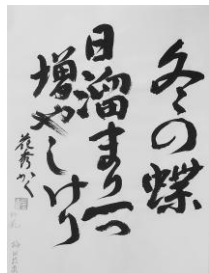 冬の蝶
日溜まり一つ
増やしけり
花秀かく